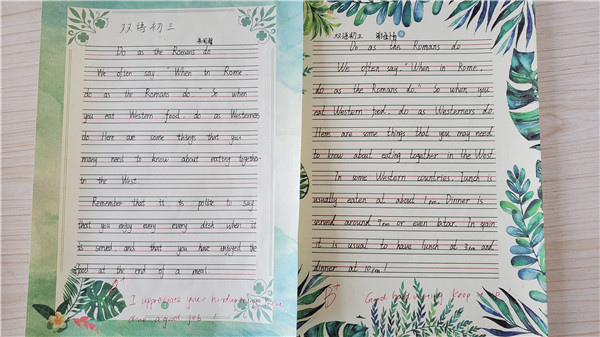 双语初三
Do as the Romans do
We often say "When in Rome,
do as the Romans do." So when
you eat Western food, do as Westerners
do. Here are some things that you
many need to know about eating together
in the West.
Remember that it is polite to say
that you enjoy every every dish when it
is served and that you have enjoyed the
food at the end of a meal.
I appreciate your
done a good job!
双语初三
Do as the Romans do
We often say, "When in Rome,
do as the Romans do." So when you
eat Western food, do as Westerners do.
Here are some things that you may need
to know about eating together in the West
In some Western countries, lunch is
usually eaten at about 1pm. Dinner is
served around 7pm or even later. In Spain
it is usual to have lunch at 3pm and
dinner at 10pm!
Good handwriting keep it up!